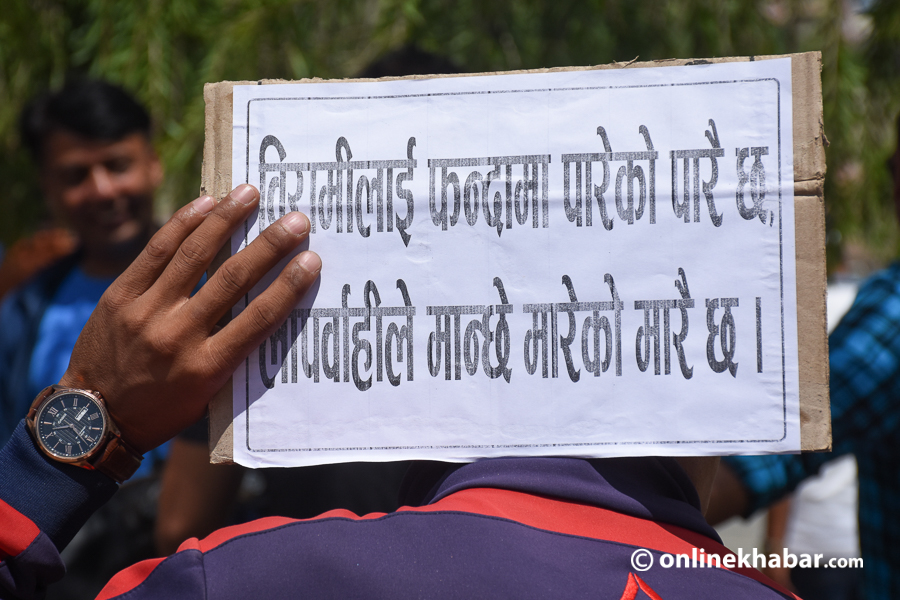 विरामीलाई फन्दामा पारेको पारै छ,
लापर्वाहीले मान्छे मारेको मारै छ ।
© onlinekhabar.com